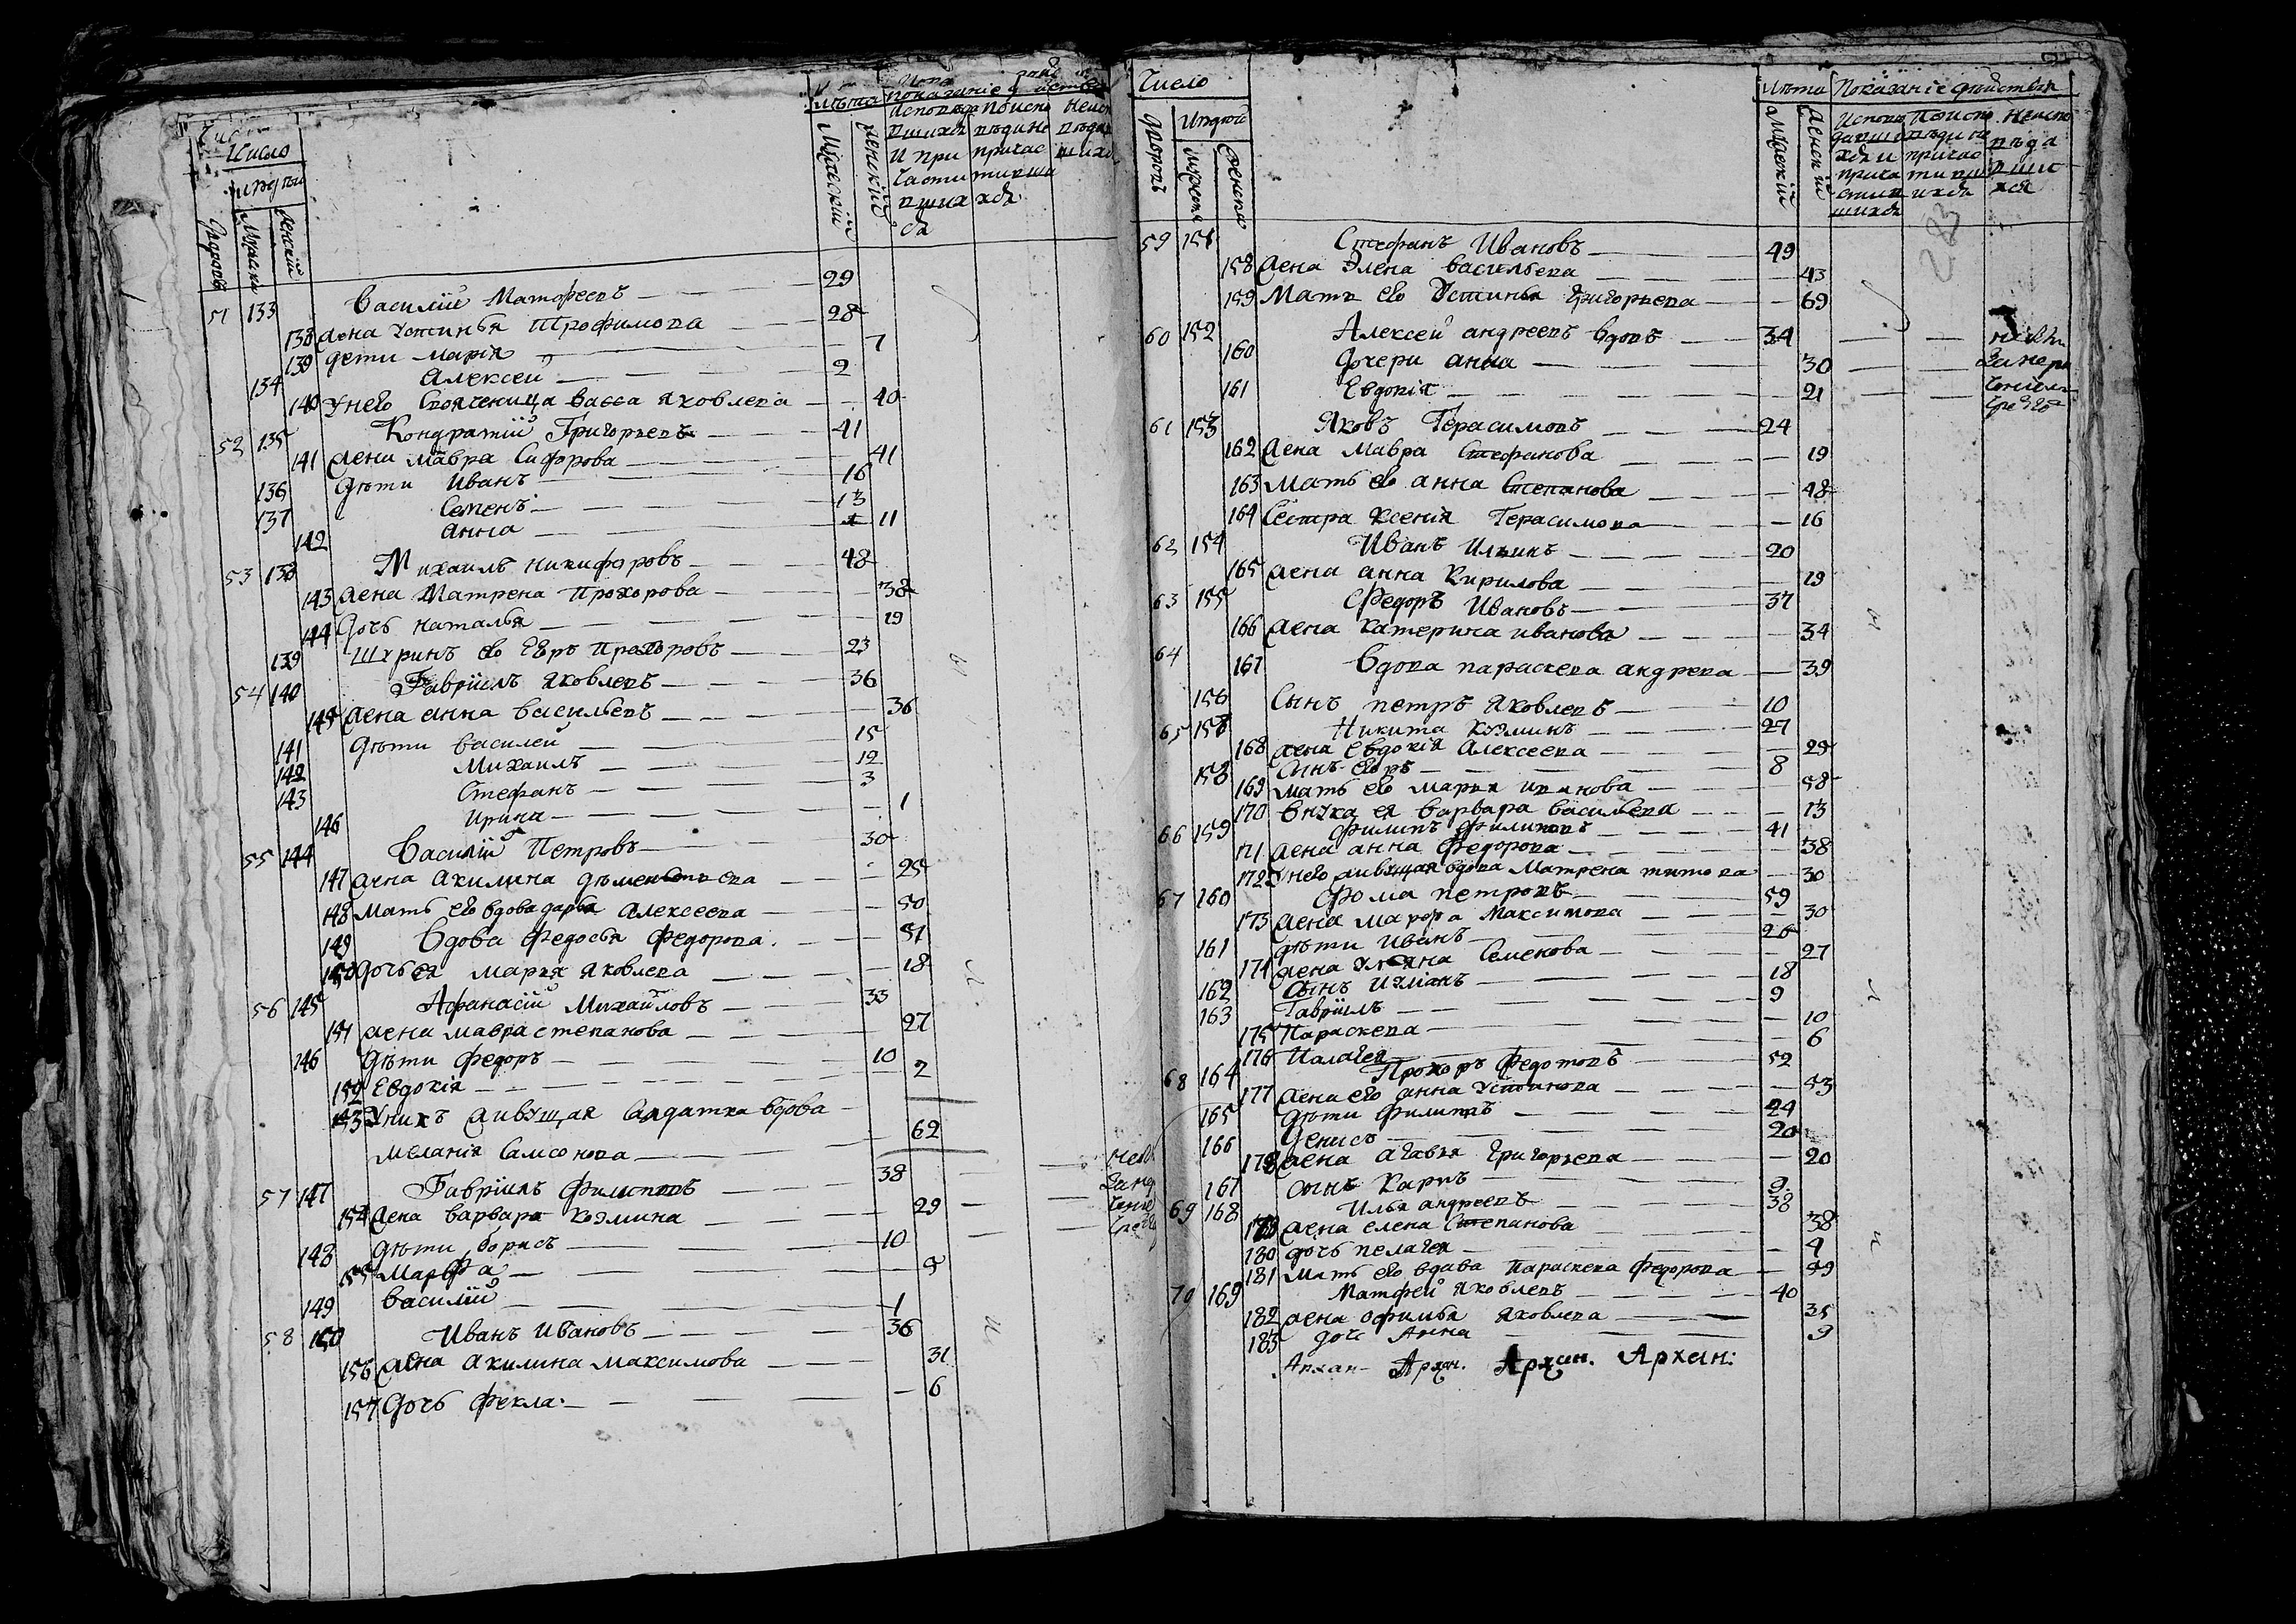 Число
Людей
Дворовъ
Мужеска
Женскій
Лѣта
Показание
Мужескій
Женскій
51 133 Василій Матфеевъ 29
138 Жена Устинья Трофимова 28
139 дети Марія 7
134 Алексей 2
140 Унего Свояченица Васса Яковлева 40
52 135 Кондратій Григорьевъ 41
141 Жена Мавра Сидорова 41
136 Дѣти Иванъ 16
137 Семенъ 13
142 анна 11
53 138 Михаилъ Никифаровъ 48
143 Жена Матрена Прохорова 38
144 Дочь наталья 19
139 Шуринъ ево Егоръ Прохоровъ 23
54 140 Гавріилъ Яковлевъ 36
145 Жена анна васильевъ 36
141 Дѣти василей 15
142 Михаилъ 12
143 Стефанъ 3
146 Ирина 1
55 144 Василій Петровъ 30
147 Жена Акилина 25
148 Мать его вдова дарья Алексеева 50
149 Вдова Федосья Федорова 51
150 Дочь ея Марья Яковлева 18
56 145 Афанасій Михайловъ 33
151 Жена мавра степанова 27
146 Дѣти Федоръ 10
152 Евдокія 2
153 Унихъ Живущая Салдатка вдова
Меланія Самсонова 62
57 147 Гавріилъ Филиповъ 38
154 Жена варвара козмина 29
148 Дѣти борисъ 10
155 Марфа 5
149 василій 1
58 150 Иванъ Ивановъ 36
156 Жена Акилина Максимова 31
157 Дочь Фекла 6
Число
Людей
Дворовъ
Мужеска
Женска
Лѣта Показаніе действія
Мужескій
Женскій
283
59 151 Стефанъ Ивановъ 49
158 Жена Элена васильева 43
159 Мать его Устинья Григорьева 69
60 152 Алексей андреевъ вдовъ 34
160 Дочери анна 30
161 Евдокія 21
61 153 Яковъ Герасимовъ 24
162 Жена Мавра Стефанова 19
163 Мать ево анна Степанова 48
164 Сестра Ксенія Герасимова 16
62 154 Иванъ Ильинъ 20
165 Жена анна Кирилова 19
63 155 Федоръ Ивановъ 37
166 Жена катерина иванова 34
64 167 Вдова параскева андрева 39
156 Сынъ петръ Яковлевъ 10
65 157 Никита Козминъ 27
168 жена Евдокія Алексеева 29
158 Сынъ Егоръ 8
169 Мать его марья иванова 58
170 Внука ея варвара васильева 13
66 159 Филипъ Филиповъ 41
171 Жена анна Федорова 38
172 Унего живущая вдова Матрена титова 30
67 160 Фома петровъ 59
173 Жена марфа Максимова 30
161 Дѣти Иванъ 26
174 Жена Ульяна Семенова 27
162 Сынъ 18
163 Гавріилъ 9
175 Параскева 10
176 Палагея 6
68 164 Прохоръ Федотовъ 52
177 Жена его анна 53
165 Дѣти Филипъ 24
166 Денисъ 20
178 Жена агафья Григорьева 20
167 Сынъ Карпъ 9
69 168 Илья андреевъ 38
179 Жена елена Степанова 38
180 дочь пелагея 4
181 Мать его вдава Параскева Федорова 59
70 169 Матфей Яковлевъ 40
182 Жена офимья Яковлева 35
183 дочь Анна 9
Архан. Архан. Архан. Архан: